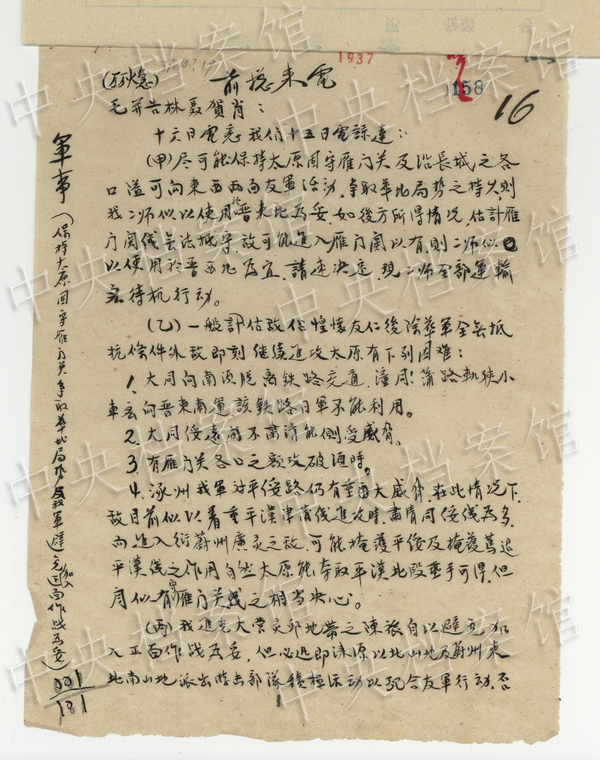 1937
158
16
(万火急) 前总来电
毛并告林聂贺肖：
十六日电悉我们十五日电谅达：
(甲)尽可能保持太原固守雁门关及沿长城之各
口溢可向东西两面友军活动，争取华北局势之持久，则
我二师似以使用於晋东北为妥，如後方所得情况，估计雁
门关线无法抵守敌可能进入雁门关以南则二师似
以使用於晋西北为宜，请速决定，现二师全部运输
待机行动。
(乙)一般评估敌化
抗条件外敌即刻继续进攻太原有下列困难：
1. 大同向南须脱离铁路交通，潼同蒲路轨狭小
车去向晋东南运该铁路日军不能利用。
2. 大同绥远尚不肃清能侧受威胁。
3. 有雁门关各口之敌攻破须时。
4. 涿州我军对平绥路仍有重大威胁，在此情况下，
敌目前似以着重平汉津浦线进攻时，肃清同绥线为多，
而进入蔚州广灵之敌，可能掩护平绥及掩护
平汉线之作用自然太原能夺取平汉北段垂手可得，但
同似有守雁门关线之相当决心。
(丙)我进克大营灵邱地带之陈旅自以避免加
入正面作战为妥，但必迅即涞源以北山地及蔚州东
北南山地派出游击部队积极活动以配合友军行动，否
军事（保持太原固守雁门关争取华北局势及我军避免加入正面作战为妥）
001
181
中央档案馆